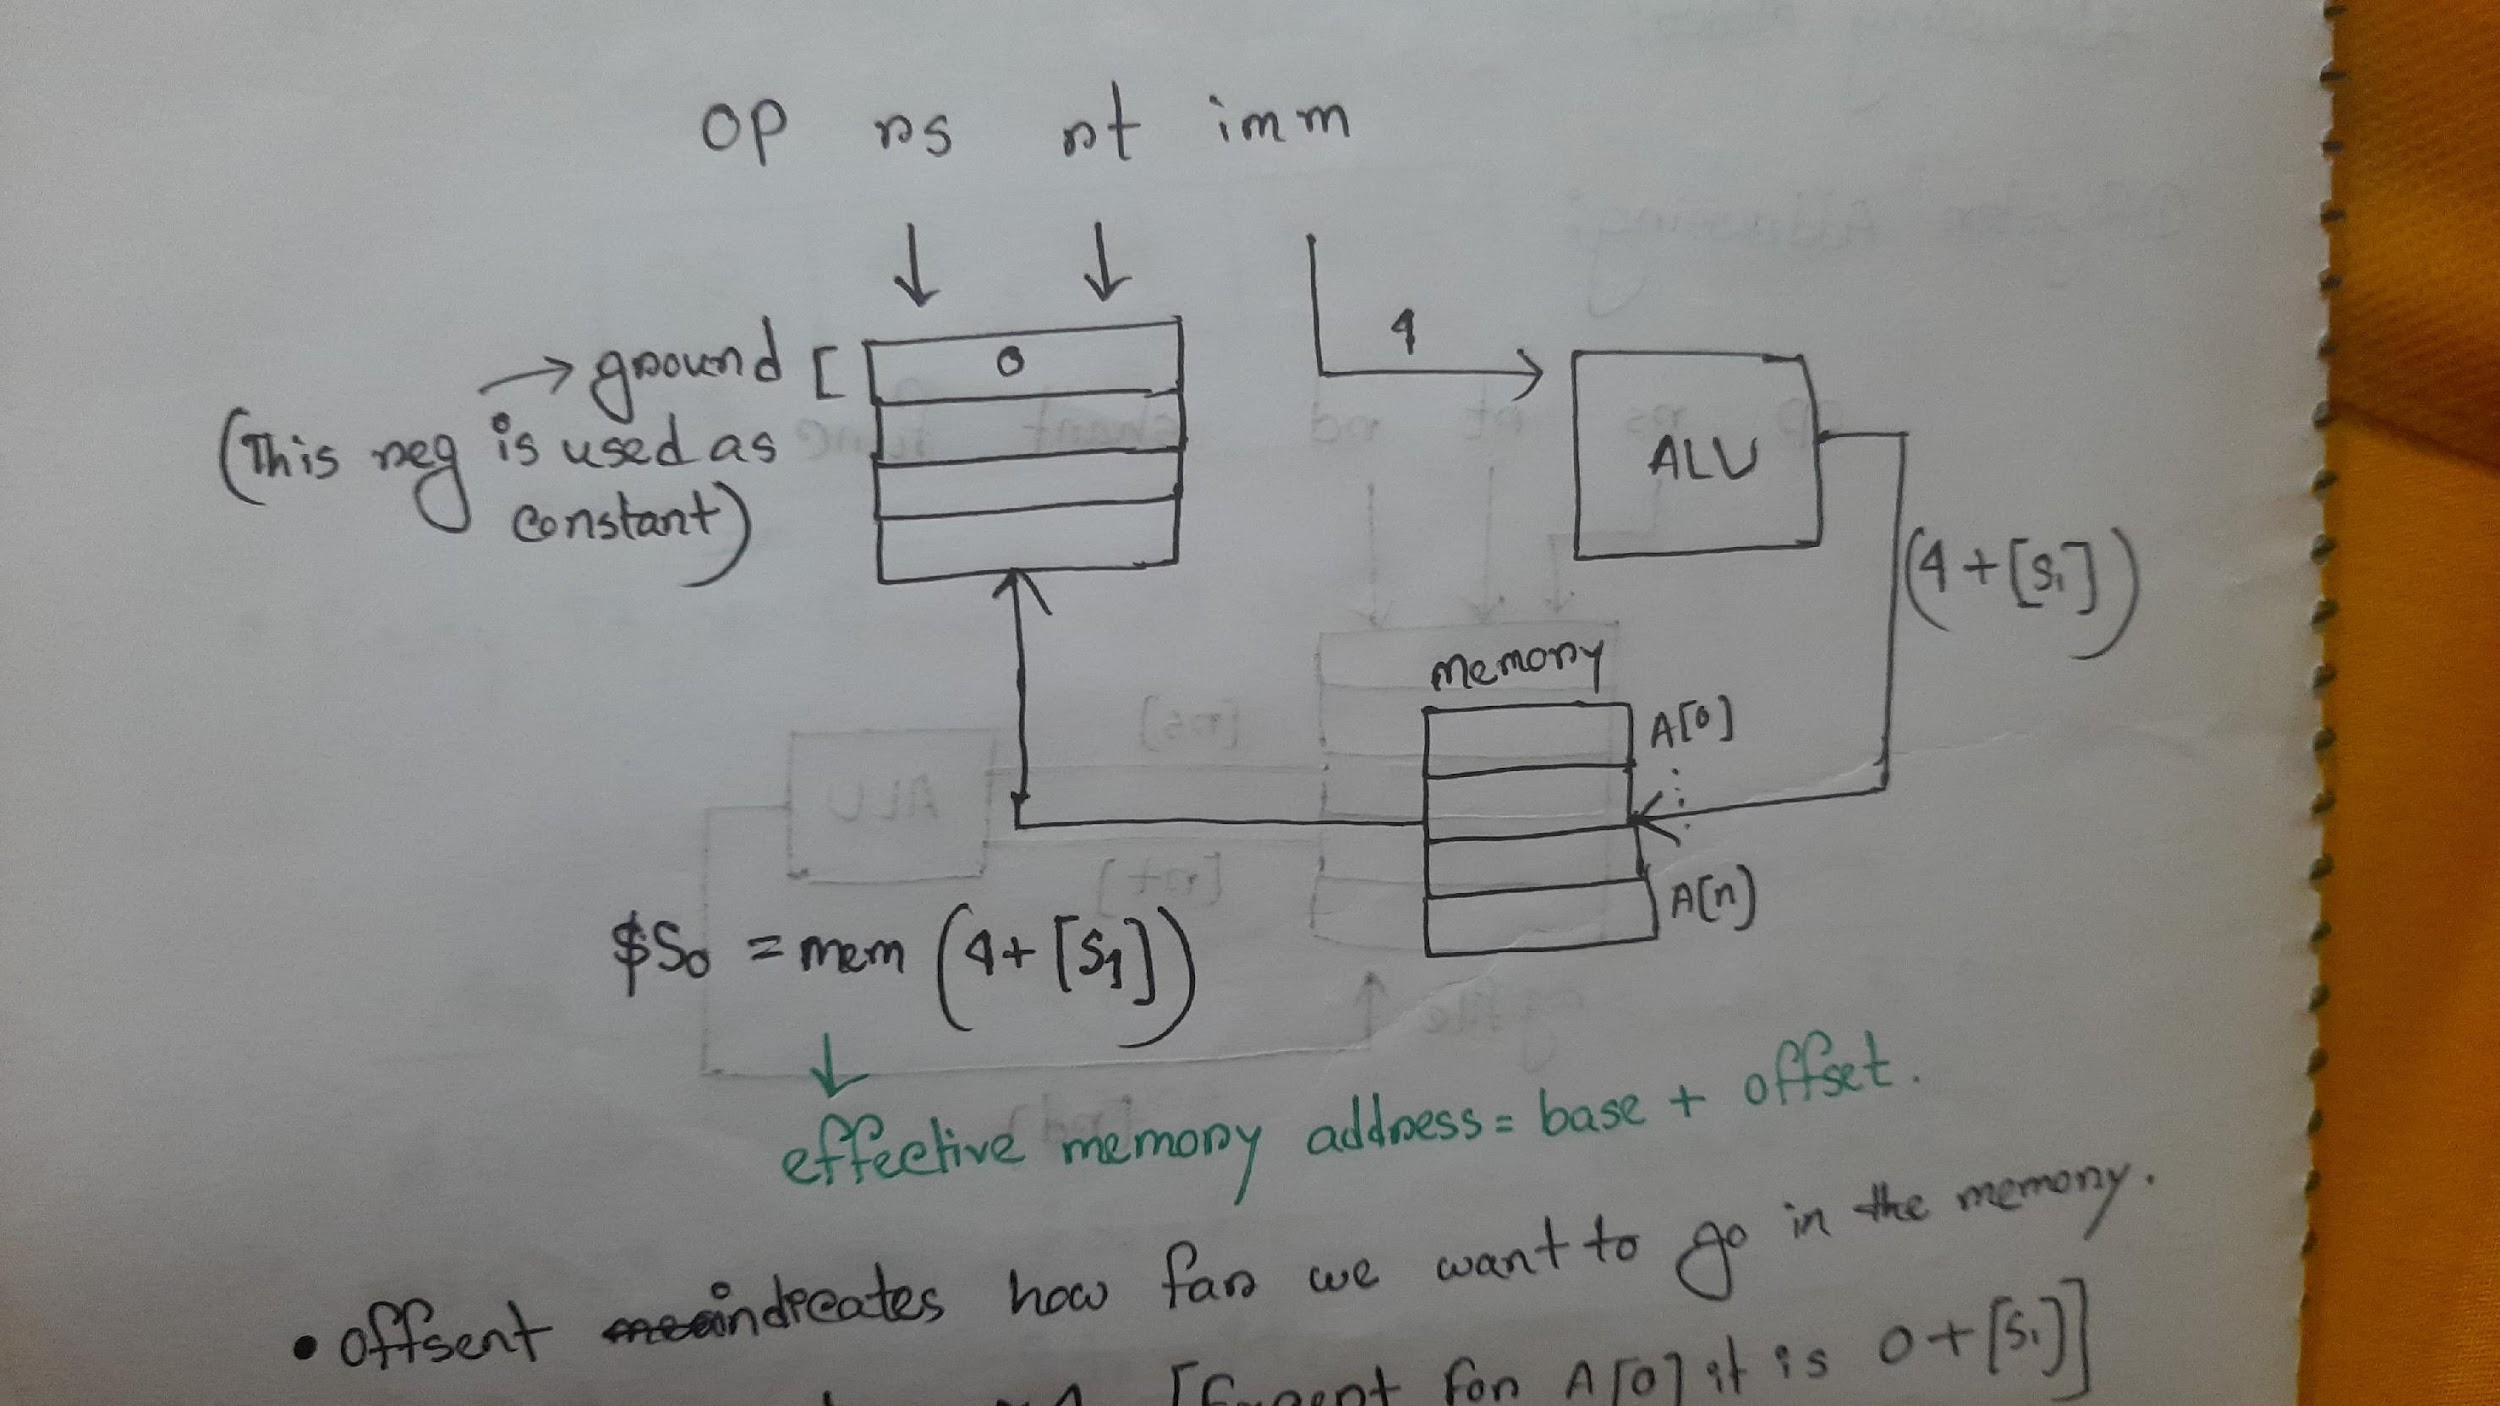 OP rs rt imm
→ ground [ 0
(This reg is used as
constant)
4
ALU
(4+[S1])
memory
A[0]
A[n]
$S0 = mem (4+[S1])
effective memory address = base + offset.
• offsent indicates how far we want to go in the memory.
for A[0] it is 0+[S1]]